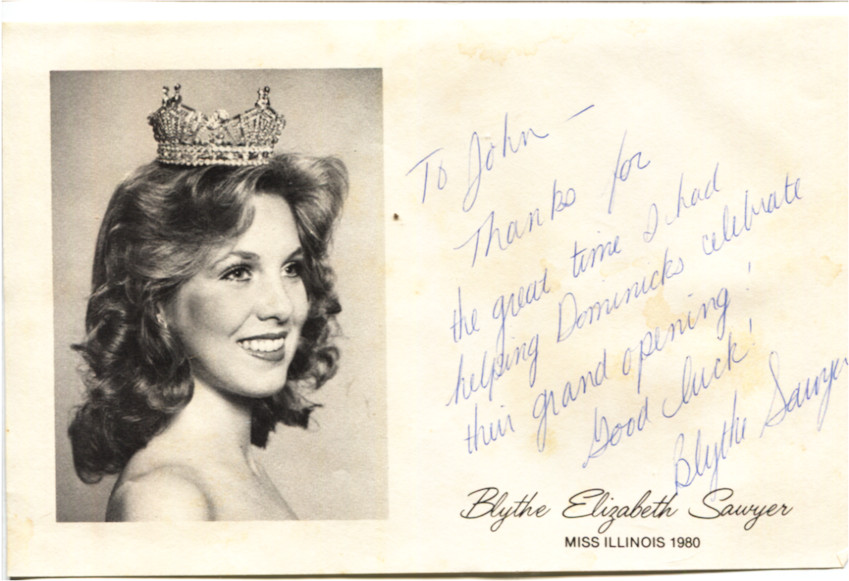 To John —
Thanks for
the great time I had
helping Dominicks celebrate
their grand opening!
Good luck!
Blythe Sawyer
Blythe Elizabeth Sawyer
MISS ILLINOIS 1980